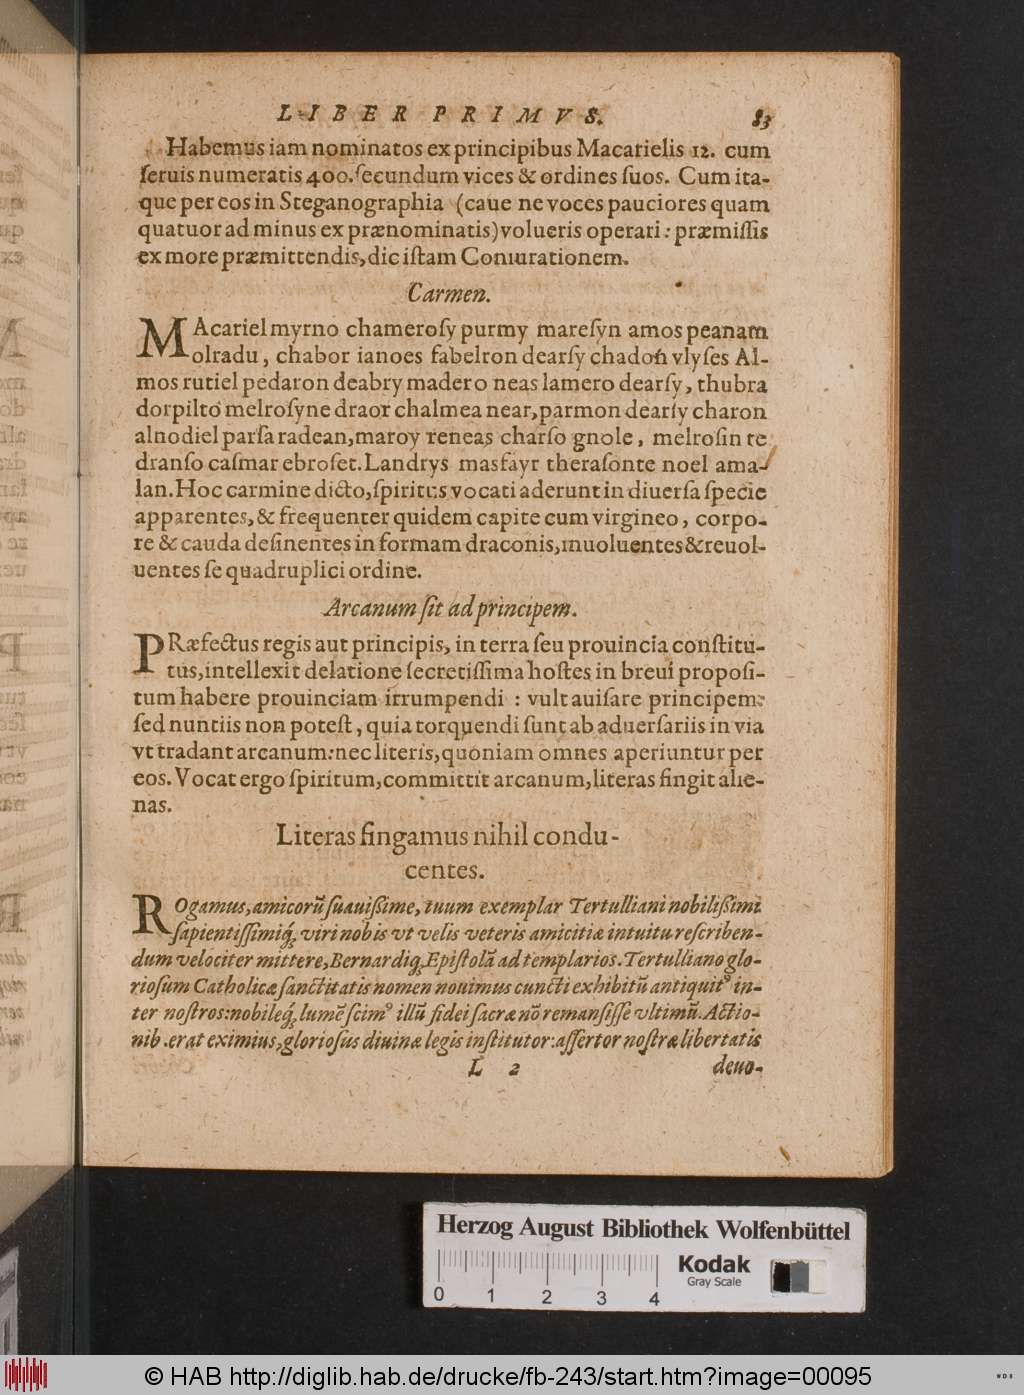 LIBER PRIMVS. 83
Habemus iam nominatos ex principibus Macarielis 12. cum
ſeruis numeratis 400. ſecundum vices & ordines ſuos. Cum ita-
que per eos in Steganographia (caue ne voces pauciores quam
quatuor ad minus ex prænominatis) volueris operari: præmiſſis
ex more præmittendis, dic iſtam Coniurationem.
Carmen.
MAcariel myrno chameroſy purmy mareſyn amos peanam
olradu, chabor ianoes fabelron dearſy chadon vlyſes Al-
mos rutiel pedaron deabry madero neas lamero dearſy, thubra
dorpilto melroſyne draor chalmea near, parmon dearſy charon
alnodiel parſa radean, maroy reneas charſo gnole, melroſin te
dranſo caſmar ebroſet. Landrys masfayr theraſonte noel ama-
lan. Hoc carmine dicto, ſpiritus vocati aderunt in diuerſa ſpecie
apparentes, & frequenter quidem capite cum virgineo, corpo-
re & cauda deſinentes in formam draconis, inuoluentes & reuol-
uentes ſe quadruplici ordine.
Arcanum ſit ad principem.
PRæfectus regis aut principis, in terra ſeu prouincia conſtitu-
tus, intellexit delatione ſecretiſſima hoſtes in breui propoſi-
tum habere prouinciam irrumpendi : vult auiſare principem:
ſed nuntiis non poteſt, quia torquendi ſunt ab aduerſariis in via
vt tradant arcanum: nec literis, quoniam omnes aperiuntur per
eos. Vocat ergo ſpiritum, committit arcanum, literas fingit alie-
nas.
Literas fingamus nihil condu-
centes.
ROgamus, amicorũ ſuauiſſime, tuum exemplar Tertulliani nobiliſſimi
ſapientiſſimiq́; viri nobis vt velis veteris amicitiæ intuitu reſcriben-
dum velociter mittere, Bernardiq́; Epiſtolã ad templarios. Tertulliano glo-
rioſum Catholicæ ſanctitatis nomen nouimus cuncti exhibitũ antiquitꝰ in-
ter noſtros: nobileq́; lumẽ ſcimꝰ illũ fidei ſacræ nõ remanſiſſe vltimũ. Actio-
nib. erat eximius, glorioſus diuinæ legis inſtitutor: aſſertor noſtræ libertatis
L 2 deuo-
Herzog August Bibliothek Wolfenbüttel
Kodak
Gray Scale
0 1 2 3 4
© HAB http://diglib.hab.de/drucke/fb-243/start.htm?image=00095